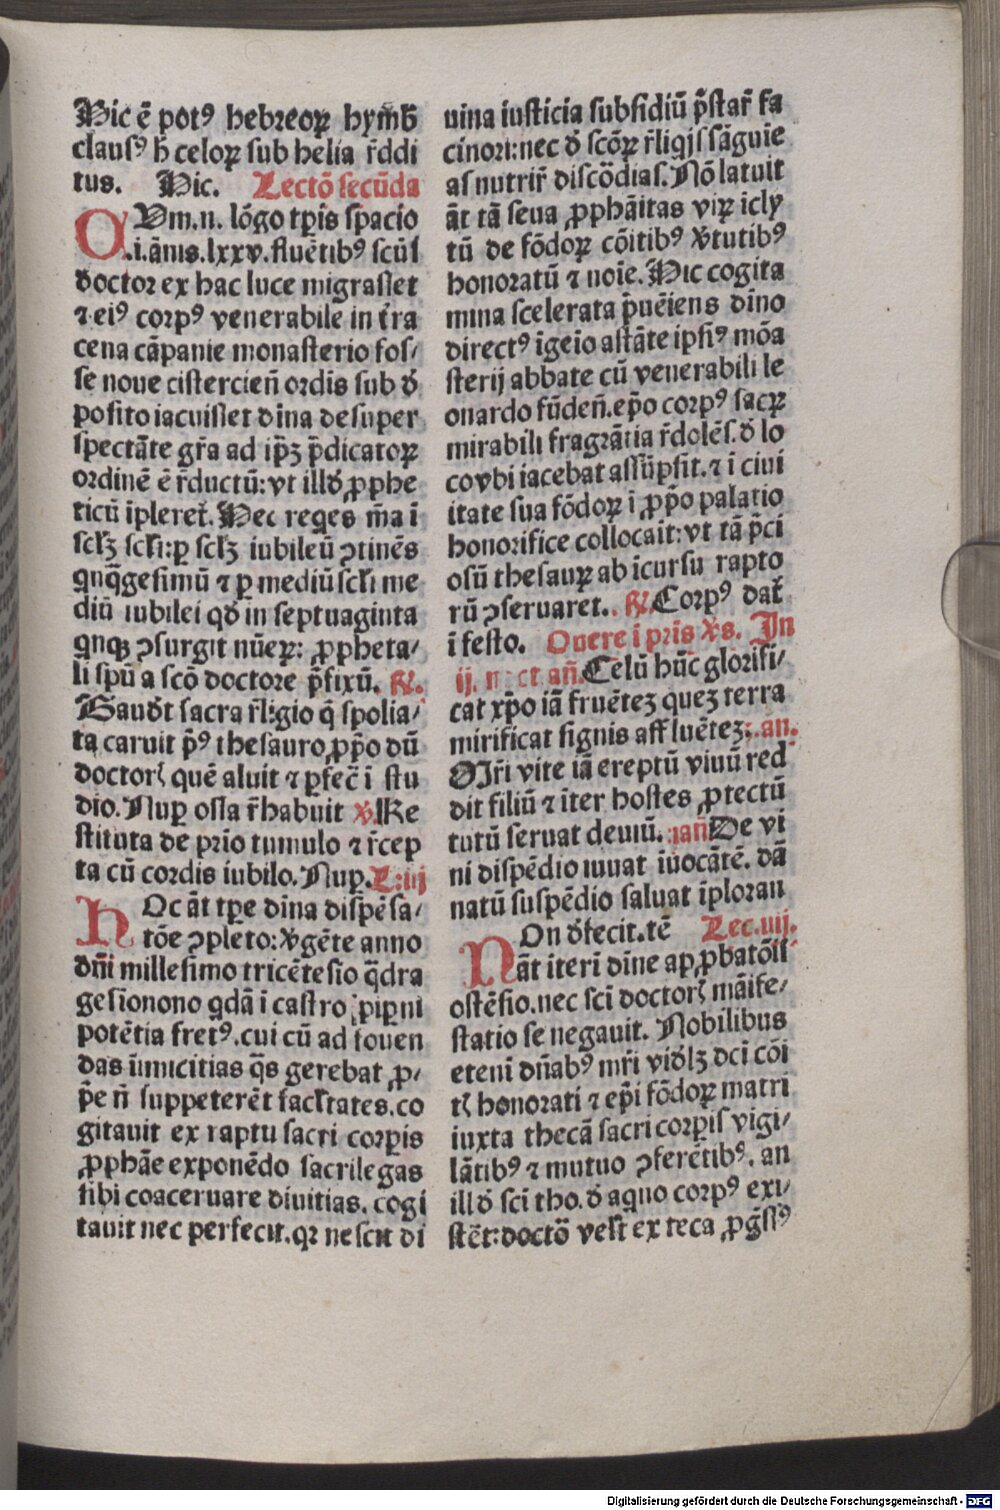 Hic ē potꝰ hebreoꝝ hymb̄
clausꝰ h̄ celoꝝ sub helia r̄ddi
tus. Hic. Lectō secūda
QVm.n. lōgo tꝑis spacio
.i.ānis.lxxv.fluētibꝰ scūl
doctor ex hac luce migrasset
⁊ eiꝰ corpꝰ venerabile in t̄ra
cena cāpanie monasterio fos⸗
se noue cistercieñ ordīs sub ꝺ̄
posito iacuisset dīna desuper
spectāte gr̄a ad ip̄ꝫ p̄dicatoꝝ
ordinē ē r̄ductū: vt illꝺ̄ ꝓphe
ticū īpleret᷑. Hec reges m̄a i
scl̄ꝫ scl̄i: ꝑ scl̄ꝫ iubileū ꝯtinēs
qnq̄gesimū ⁊ ꝑ mediū scl̄i me
diū iubilei qḋ in septuaginta
qnqꝫ ꝯsurgit nūeꝝ: ꝓpheta⸗
li spū a scō doctore p̄fixū. ℟.
Gaudꝫ sacra rl̄igio q̄ spolia⸗
ta caruit pꝰ thesauro ꝓpō dū
doctorꝭ quē aluit ⁊ ꝑfec̄ ī stu
dio. Nuꝑ ossa r̄habuit ℣. Re
stituta de prīo tumulo ⁊ r̄cep
ta cū cordis iubilo. Nuꝑ. L: iij
HOc āt tꝑe dīna dispēsa⸗
tōe ꝯpleto: ꝟgēte anno
dn̄i millesimo tricētesīo q̄dra
gesionono qdā ī castro piꝑni
potētia fretꝰ. cui cū ad fouen
das īimicitias q̄s gerebat ꝓ⸗
p̄e n̄ suppeterēt facl̄tates. co
gitauit ex raptu sacri corꝑis
ꝓphāe exponēdo sacrilegas
sibi coaceruare diuitias. cogi
tauit nec perfecit. qꝛ nescit di
uina iusticia subsidiū p̄star̄ fa
cinori: nec ꝺ̄ scōꝝ r̄liqijs sāguie
as nutrir̄ discōdias. Nō latuit
āt tā seua ꝓphāitas viꝝ icly
tū de fōdoꝝ cōitibꝰ ꝟtutibꝰ
honoratū ⁊ noīe. Hic cogita
mina scelerata p̄uēiens dīno
directꝰ īgeīo astāte ipsiꝰ mōa
sterij abbate cū venerabili le
onardo fūdeñ. ep̄o corpꝰ sacꝝ
mirabili fragrātia r̄dolēs. ꝺ̄ lo
co vbi iacebat assūpsit. ⁊ ī ciui
itate sua fōdoꝝ ī ꝓpō palatio
honorifice collocait: vt tā p̄ci
osū thesauꝝ ab icursu rapto
rū ꝯseruaret. ℟. Corpꝰ dat᷑
ī festo. Quere ī pr̄is ꝟs. In
ij. noct añ. Celū hūc glorifi⸗
cat xp̄o iā fruēteꝫ queꝫ terra
mirificat signis affluēteꝫ: an.
Mr̄i vite iā ereptū viuū red
dit filiū ⁊ īter hostes ꝓtectū
tutū seruat deuiū. añ De vi
ni dispēdio iuuat īuocātē. dā
natū suspēdio saluat īploran
NOn ꝺ̄fecit. tē Lec.iiij.
āt iteri dīne apꝓbatōīi
ostēsio. nec sci doctorꝭ māife⸗
statio se negauit. Nobilibus
eteni dn̄abꝰ mr̄i vidꝫ dci cōi
tꝭ honorati ⁊ ep̄i fōdoꝝ matri
iuxta thecā sacri corꝑis vigi⸗
lātibꝰ ⁊ mutuo ꝯferētibꝰ. an
illꝺ̄ sci tho. ꝺ̄ aqno corpꝰ exi⸗
stēt: doctō vest᷑ ex teca ꝓgssꝰ
Digitalisierung gefördert durch die Deutsche Forschungsgemeinschaft - DFG